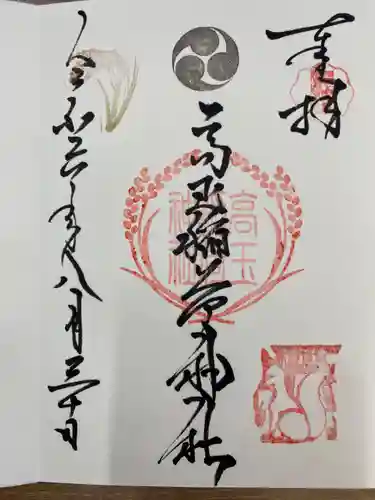 奉拝
高玉稲荷神社
高玉
神社
令和六年八月三十日